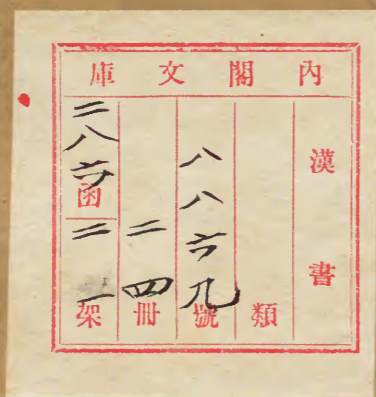 內閣文庫
漢書
類
八八六九號
二四冊
二八六函
二一架